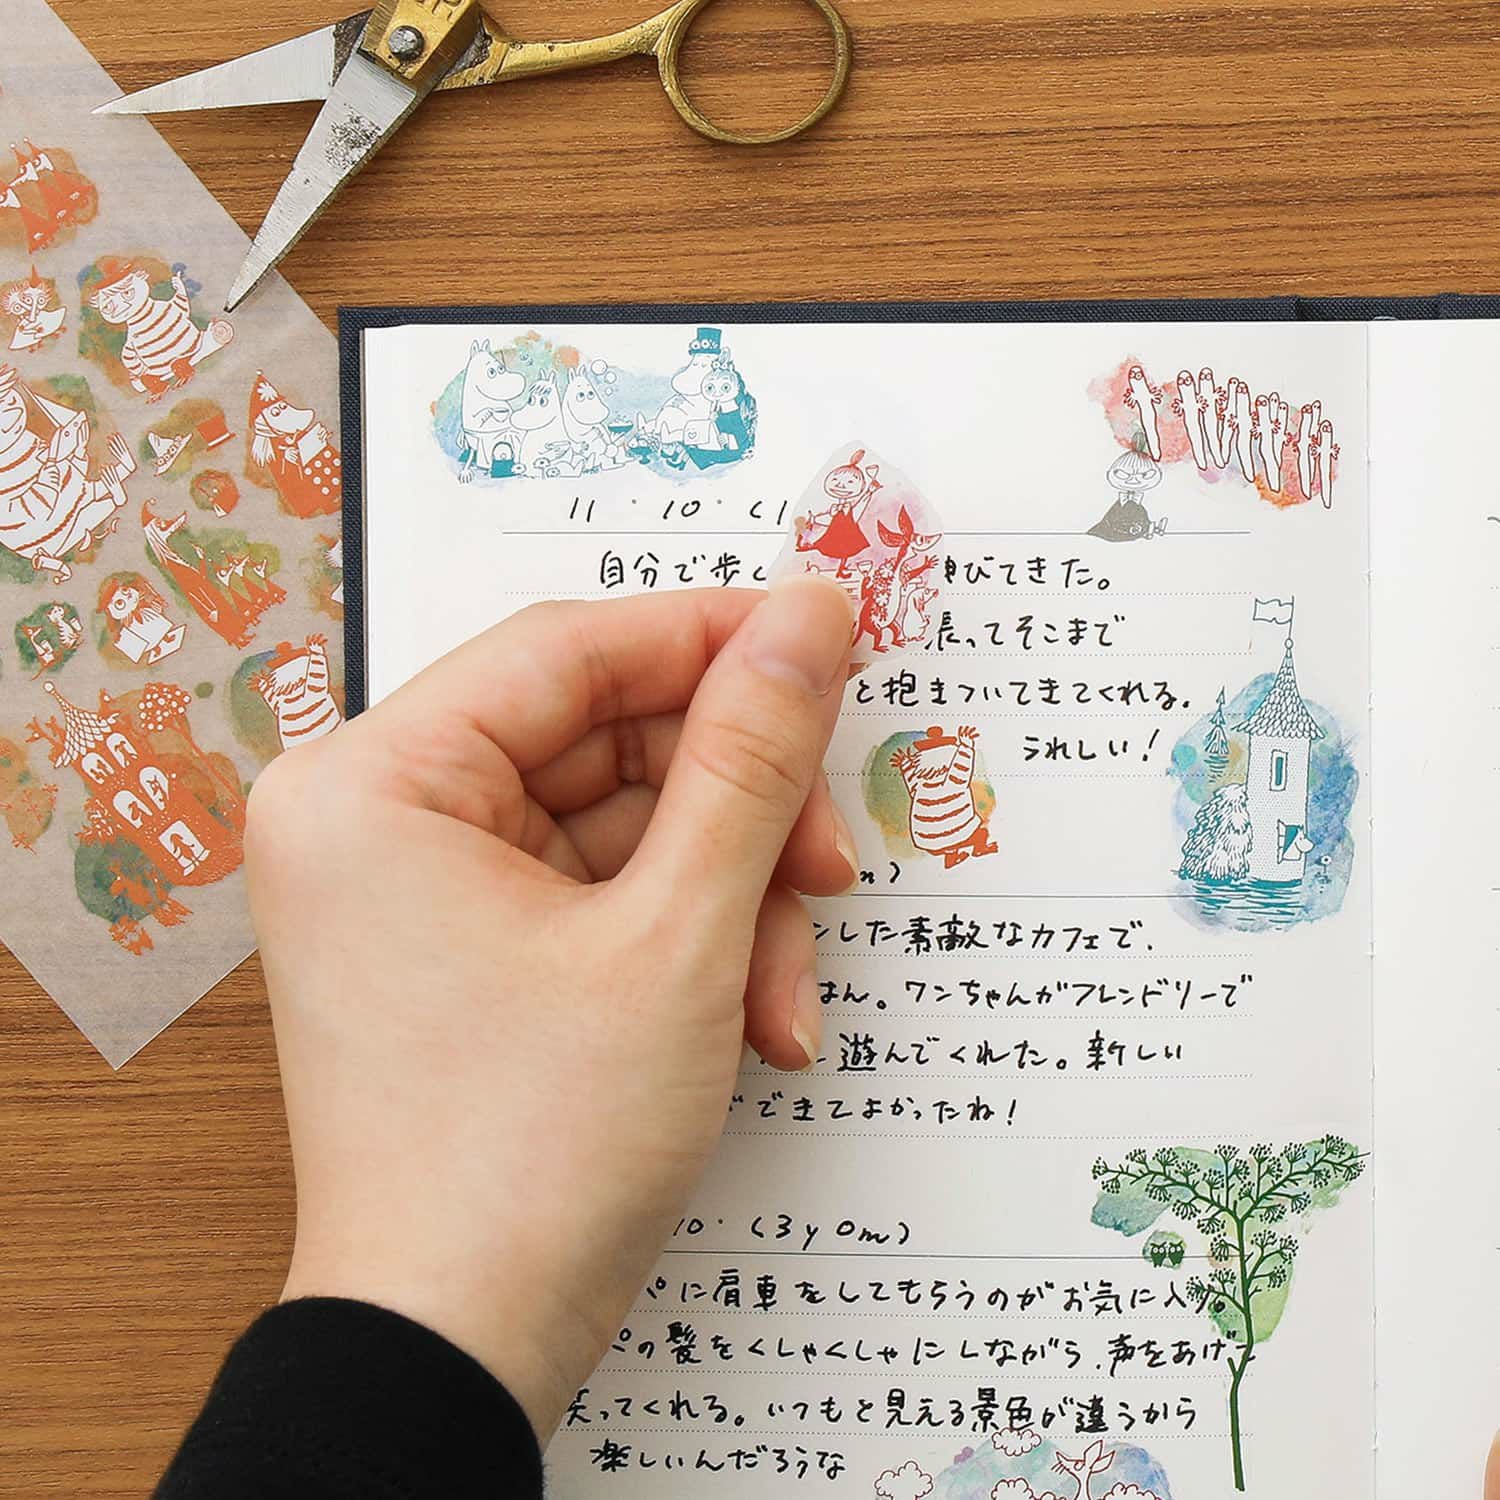 11・10・(1
自分で歩く びてきた。
張ってそこまで
と抱きついてきてくれる。
うれしい!
m)
ンした素敵なカフェで、
はん。ワンちゃんがフレンドリーで
遊んでくれた。新しい
できてよかったね!
10・(3y0m)
パに肩車をしてもらうのがお気に入り。
パの髪をくしゃくしゃにしながら、声をあげて
笑ってくれる。いつもと見える景色が違うから
楽しいんだろうな